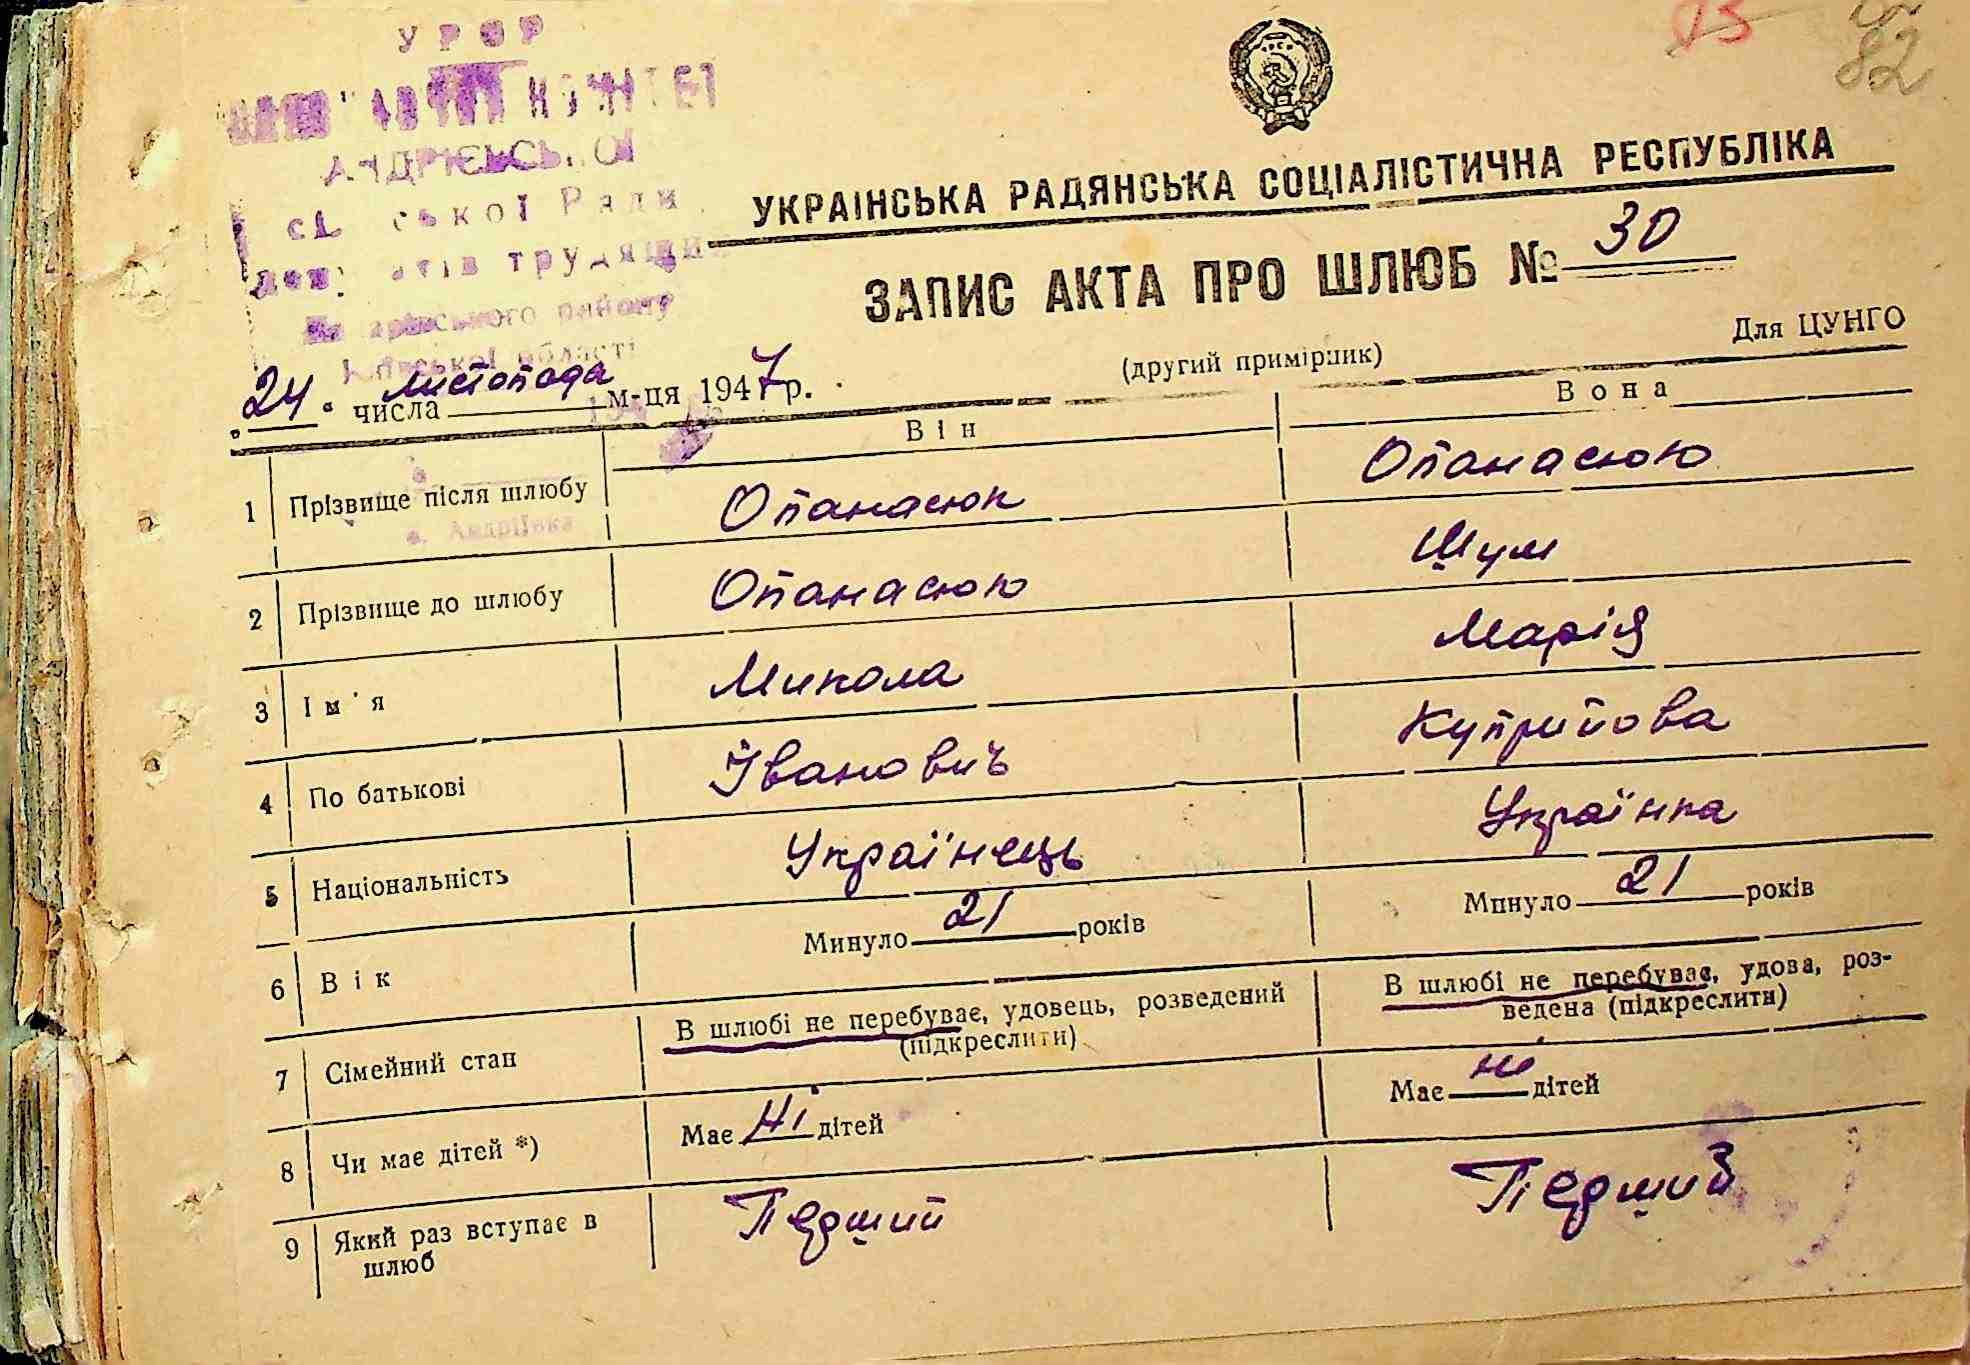 УРСР
КОМІТЕТ
АНДРІЄВСЬКОЇ
сільської Ради
депутатів трудящих
Макарівського району
Київської області
с. Андріївка
93
82
УКРАІНСЬКА РАДЯНСЬКА СОЦІАЛІСТИЧНА РЕСПУБЛІКА
ЗАПИС АКТА ПРО ШЛЮБ № 30
Для ЦУНГО
(другий примірник)
24 числа листопада м-ця 1947 р.
Він Вона
1 Прізвище після шлюбу Опанасюк Опанасюк
2 Прізвище до шлюбу Опанасюк Шум
3 Ім'я Микола Марія
4 По батькові Іванович Куприйова
5 Національність Українець Українка
6 Вік Минуло 21 років Минуло 21 років
7 Сімейний стан В шлюбі не перебуває, удовець, розведений (підкреслити) В шлюбі не перебуває, удова, роз-
ведена (підкреслити)
8 Чи має дітей *) Має ні дітей Має ні дітей
9 Який раз вступає в Перший Перший
шлюб